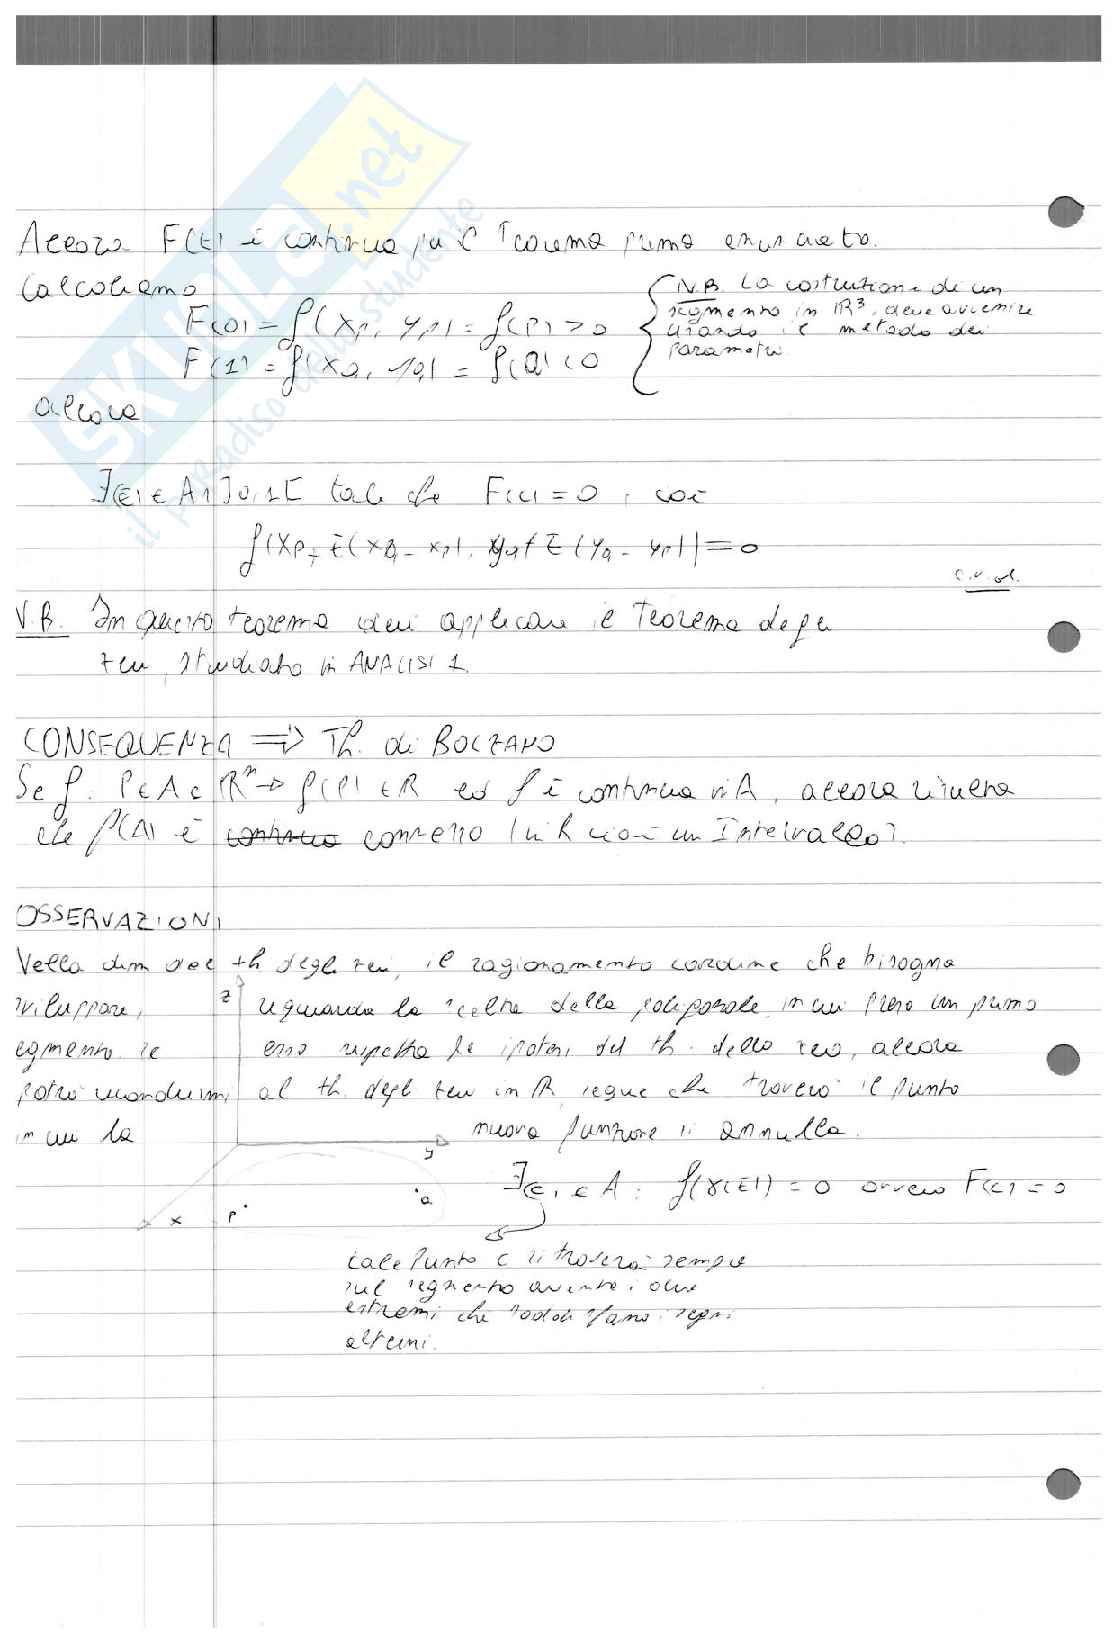 SKUOLA.net
il paradiso dello studente
Allora F(t) è continua per il Teorema prima enunciato.
Calcoliamo
F(0) = f(xp, yp) = f(P) > 0
F(1) = f(xQ, yQ) = f(Q) < 0
N.B. La costruzione di un
segmento in R³, deve avvenire
usando il metodo dei
parametri.
allora
∃ c, ∈ A ]0,1[ tale che F(c) = 0, cioè
f(xp + t̄(xQ - xp), yp + t̄(yQ - yp)) = 0
c.v.d.
N.B. In questo teorema devi applicare il Teorema degli
zeri, studiato in ANALISI 1.
CONSEQUENZA ⇒ Th. di BOLZANO
Se f: P∈A⊂Rⁿ → f(P) ∈ R ed f è continua in A, allora risulta
che f(A) è continuo connesso (in R cioè un Intervallo).
OSSERVAZIONI
Nella dim del th degli zeri, il ragionamento cardine che bisogna
sviluppare, riguarda la scelta della poligonale, in cui preso un primo
segmento se esso rispetta le ipotesi del th. dello zero, allora
potrò ricondurmi al th. degli zeri in R, segue che troverò il punto
in cui la nuova funzione si annulla.
z
y
x
P
Q
∃ c, ∈ A : f(γ(t)) = 0 ovvero F(c) = 0
tale Punto c si troverà sempre
sul segmento avente i due
estremi che soddisfano i segni
alterni.